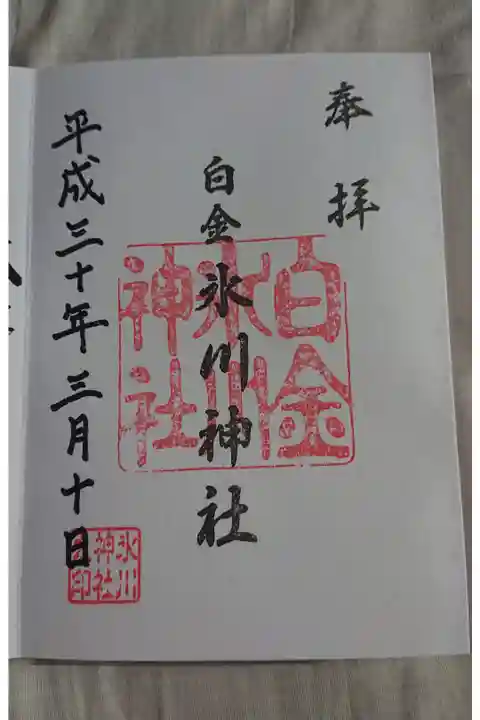 奉拝
白金氷川神社
白金氷川神社
平成三十年三月十日
氷川神社